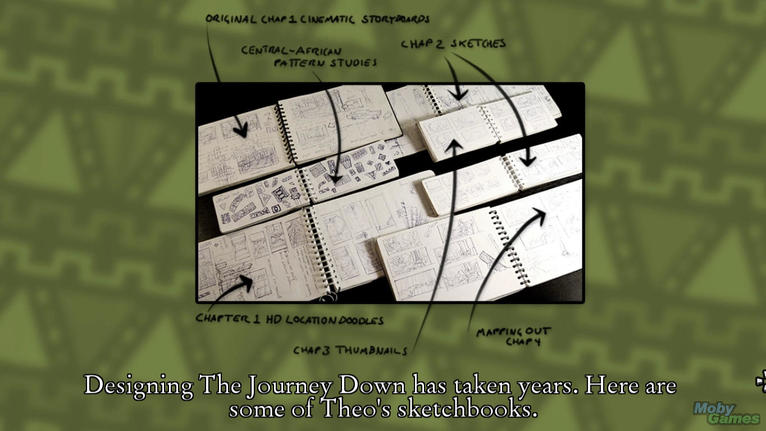 ORIGINAL CHAP 1 CINEMATIC STORYBOARDS
CENTRAL-AFRICAN
PATTERN STUDIES
CHAP 2 SKETCHES
CHAPTER 1 HD LOCATION DOODLES
CHAP 3 THUMBNAILS
MAPPING OUT
CHAP 4
Designing The Journey Down has taken years. Here are
some of Theo's sketchbooks.
Moby
Games